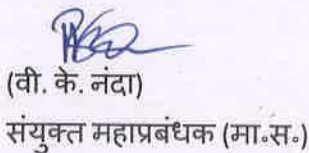 (वी. के. नंदा)
संयुक्त महाप्रबंधक (मा॰स॰)